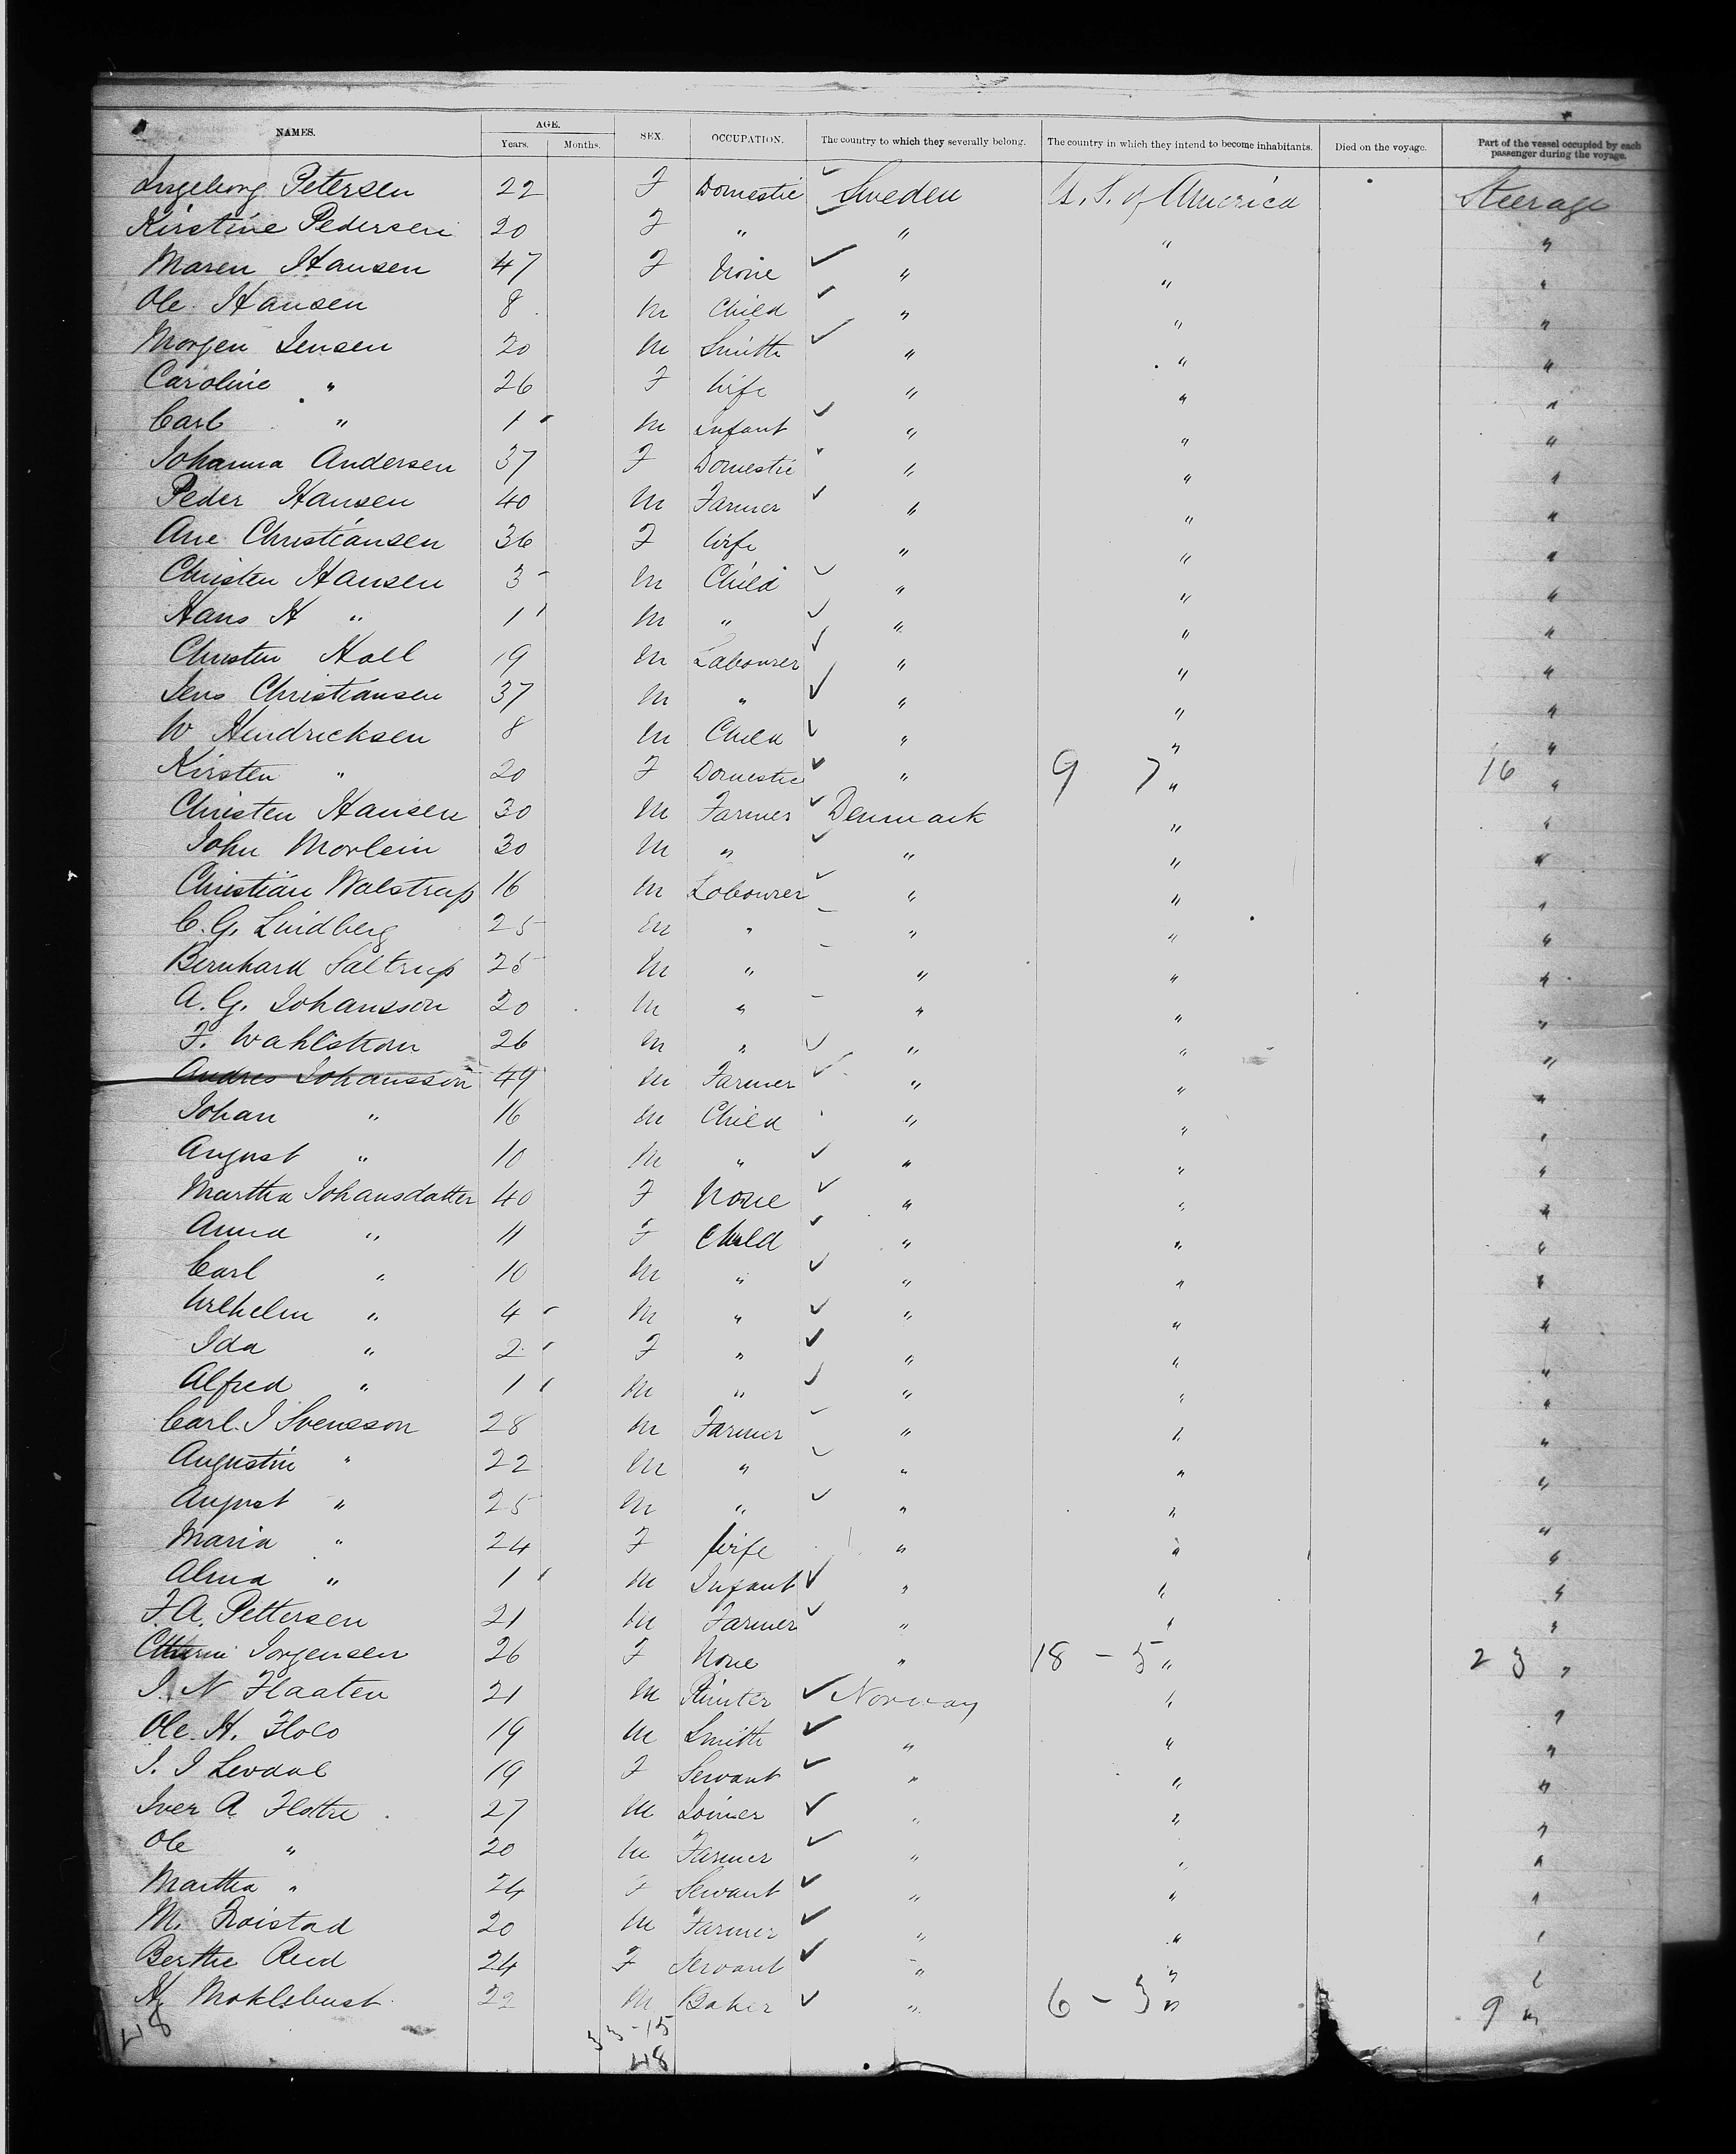 NAMES. AGE. SEX. OCCUPATION. The country to which they severally belong. The country in which they intend to become inhabitants. Died on the voyage. Part of the vessel occupied by each passenger during the voyage.
Years. Months.
Ingeborg Petersen 22 F Domestic Sweden U. S. of America Steerage
Kirstine Pedersen 20 F " " " "
Maren Hansen 47 F None " " "
Ole Hansen 8 M Child " " "
Morgen Jensen 20 M Smith " " "
Caroline " 26 F Wife " " "
Carl " 1 M Infant " " "
Johanna Andersen 37 F Domestic " " "
Peder Hansen 40 M Farmer " " "
Ane Christiansen 36 F Wife " " "
Christen Hansen 3 M Child " " "
Hans H " 1 M " " " "
Christen Holl 19 M Labourer " " "
Jens Christiansen 37 M " " " "
W Hendricksen 8 M Child " " "
Kirsten " 20 F Domestic " 9 7 " 16 "
Christen Hansen 30 M Farmer Denmark " "
John Morlein 30 M " " " "
Christian Walstrup 16 M Labourer " " "
C. G. Lindberg 25 M " " " "
Bernhard Saltrup 25 M " " " "
A. G. Johansson 20 M " " " "
F. Wahlstrom 26 M " " " "
Andres Johansson 49 M Farmer " " "
Johan " 16 M Child " " "
August " 10 M " " " "
Martha Johansdatter 40 F None " " "
Anna " 11 F Child " " "
Carl " 10 M " " " "
Wilhelm " 4 M " " " "
Ida " 2 F " " " "
Alfred " 1 M " " " "
Carl J Svensson 28 M Farmer " " "
Augustin " 22 M " " " "
August " 25 M " " " "
Maria " 24 F Wife " " "
Alma " 1 M Infant " " "
F. A. Pettersen 21 M Farmer " " "
Jorgensen 26 F None " 18 - 5 " 23 "
J. N Flaaten 21 M Painter Norway " "
Ole H. Flolo 19 M Smith " " "
J. J Levdal 19 F Servant " " "
Iver A Flottre 27 M Joiner " " "
Ole " 20 M Farmer " " "
Martha " 24 F Servant " " "
M. Froistad 20 M Farmer " " "
Berthe Aud 24 F Servant " " "
H. Moklebust 22 M Baker " 6 - 3 " 9 "
48 33-15
48